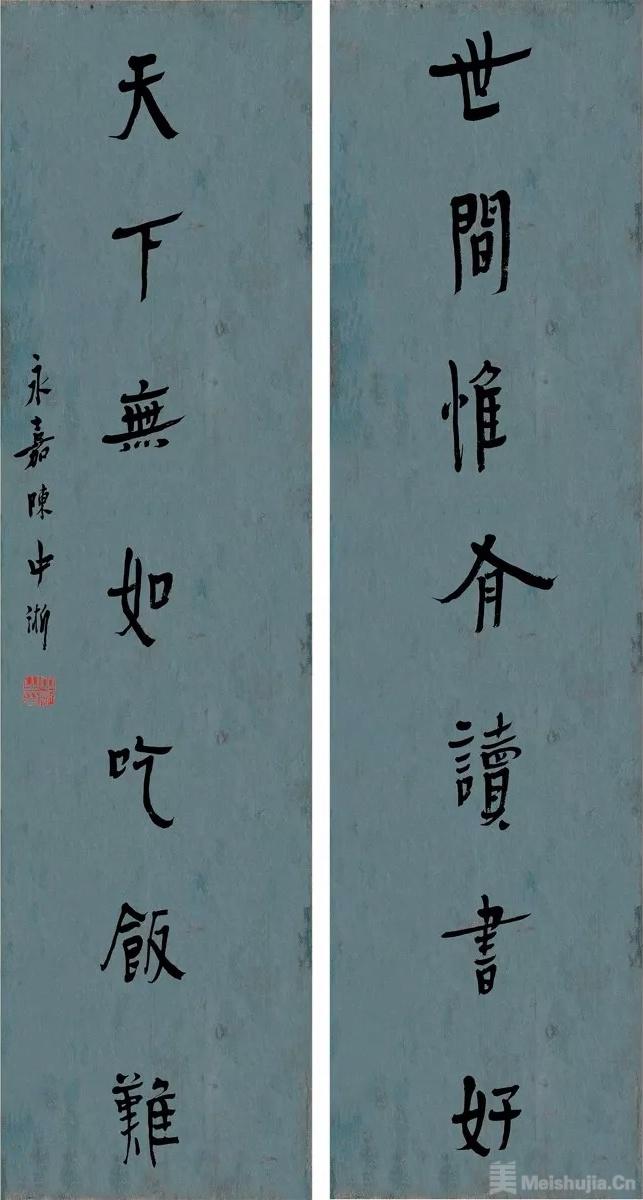 世間惟有讀書好
天下無如吃飯難
永嘉陳中浙
美 Meishujia.Cn